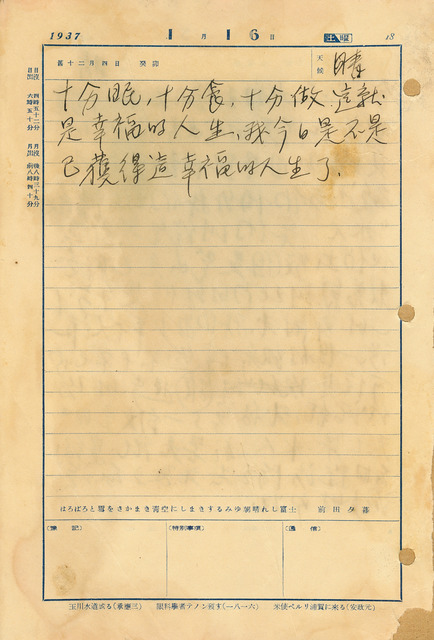 1937 1月16日 土曜 18
舊十二月四日 癸卯
天候 晴
十分眠,十分食,十分做.這就
是幸福的人生,我今日是不是
已獲得這幸福的人生了.
日出 六時五十分
日沒 四時五十二分
月出 前八時四十分
月沒 後八時三十九分
はろばろと雪をさかまき青空にしまきするみゆ朝晴れし富士 前田夕暮
(豫記)
(特別事項)
(通信)
玉川水道成る(承應三)
眼科醫者グレーフェ
米使ペルリ浦賀に來る(安政元)